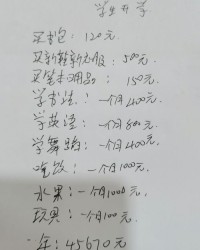 学生开学
买书包：120元.
买新鞋新衣服：500元
买笔本用品：150元.
学书法：一个月400元.
学英语：一个月800元.
学舞蹈：一个月400元.
吃饭：一个月1000元.
水果：一个月1000元.
玩具：一个月100元.
一年：45670元